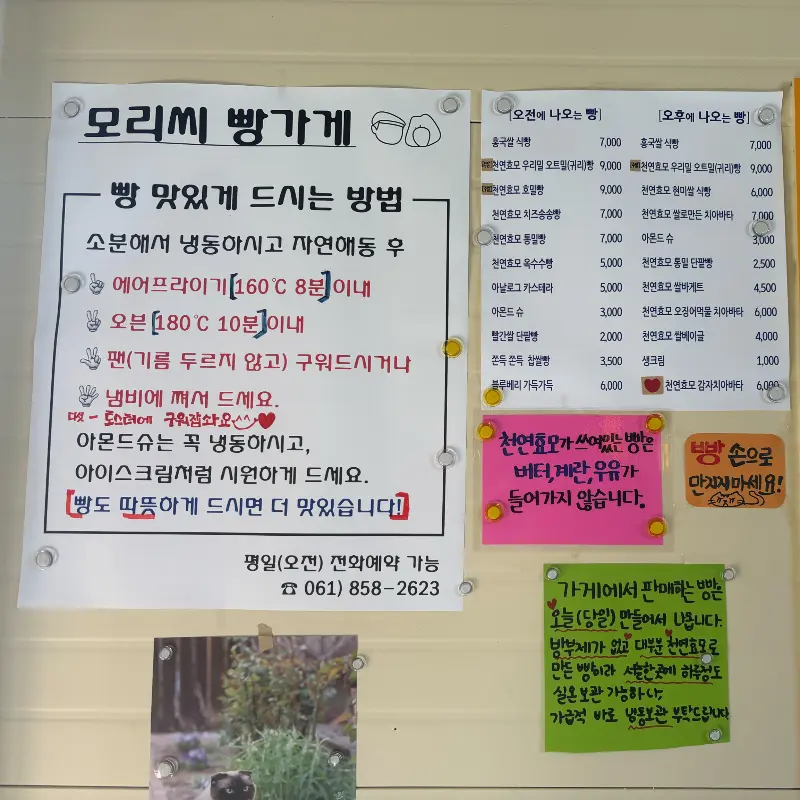 모리씨 빵가게
빵 맛있게 드시는 방법
소분해서 냉동하시고 자연해동 후
에어프라이기[160℃ 8분]이내
오븐[180℃ 10분]이내
팬(기름 두르지 않고) 구워드시거나
냄비에 쪄서 드세요.
토스터에 구워잡솨요
아몬드슈는 꼭 냉동하시고,
아이스크림처럼 시원하게 드세요.
[빵도 따뜻하게 드시면 더 맛있습니다!]
평일(오전) 전화예약 가능
☎ 061) 858-2623
[오전에 나오는 빵]
홍국쌀 식빵 7,000
천연효모 우리밀 오트밀(귀리)빵 9,000
천연효모 호밀빵 9,000
천연효모 치즈송송빵 7,000
천연효모 통밀빵 7,000
천연효모 옥수수빵 5,000
아날로그 카스테라 5,000
아몬드 슈 3,000
빨간쌀 단팥빵 2,000
쫀득 쫀득 찹쌀빵 3,500
블루베리 가득가득 6,000
[오후에 나오는 빵]
홍국쌀 식빵 7,000
천연효모 우리밀 오트밀(귀리)빵 9,000
천연효모 현미쌀 식빵 6,000
천연효모 쌀로만든 치아바타 7,000
아몬드 슈 3,000
천연효모 통밀 단팥빵 2,500
천연효모 쌀바게트 4,500
천연효모 오징어먹물 치아바타 6,000
천연효모 쌀베이글 4,000
생크림 1,000
천연효모 감자치아바타 6,000
천연효모가 쓰여있는 빵은
버터,계란,우유가
들어가지 않습니다.
빵 손으로
만지지마세요!
가게에서 판매하는 빵은
오늘(당일) 만들어서 나옵니다.
방부제가 없고 대부분 천연효모로
만든 빵이라 서늘한곳에 하루정도
실온보관 가능하나,
가급적 바로 냉동보관 부탁드립니다